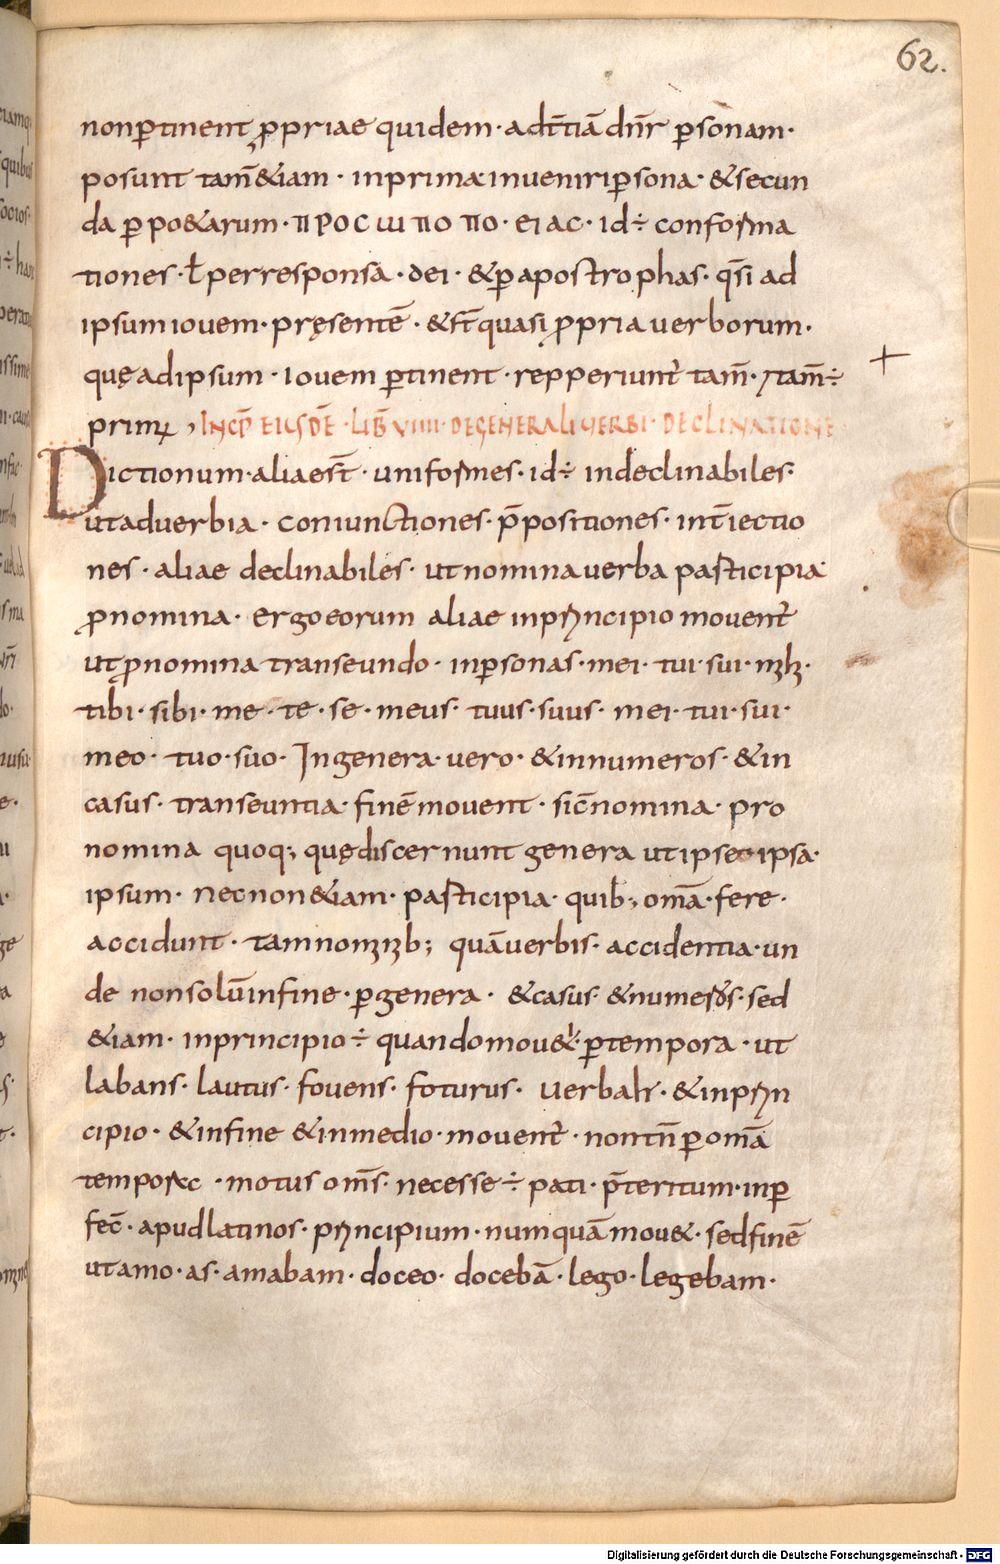 62.
non ꝑtinent ꝓpriae quidem · ad t̄tiā dn̄r ꝑsonam ·
possunt tam̄ &iam · in prima inveniri ꝑsona · & secun
da ꝑ po&arum · ΠΡΟCωΠΟΠΟ · ΕΙΑC · id ÷ conforma
tiones · ł per responsa · dei · & ꝑ apostrophas · q̄si ad
ipsum iovem · pręsentē · & st̄ quasi ꝓpria verborum ·
quę ad ipsum · iovem ꝑtinent · repperiunt̄ tam̄ ·
primę , INCP̄ EIUSDĒ · LIB̄ VIIII · DE GENERALI VERBI · DECLINATIONE
Dictionum · aliae st̄ · uniformes · id ÷ indeclinabiles ·
ut adverbia · coniunctiones · p̄positiones · int̄iectio
nes · aliae declinabiles · ut nomina verba participia
ꝓnomina · ergo eorum aliae in principio movent̄
ut ꝓnomina transeundo · in ꝑsonas · mei · tui · sui · mihi ·
tibi · sibi · me · te · se · meus · tuus · suus · mei · tui · sui ·
meo · tuo · suo · In genera · vero · & in numeros · & in
casus · transeuntia · finē movent · sic̄ nomina · pro
nomina quoq; quę discernunt genera ut ipse · ipsa ·
ipsum · necnon &iam · participia · quib; om̄a · fere ·
accidunt · tam nominib; quā verbis · accidentia · un
de non solū in fine · ꝑ genera · & casus · & numeros · sed
&iam · in principio ÷ quando mov& · ꝑ tempora · ut
labans · lautus · fovens · foturus · verbalr · & in prin
cipio · & in fine & in medio · movent̄ · non tn̄ ꝑ om̄a
tempora · motus om̄s · necesse ÷ pati · p̄teritum · inꝑ
fec̄ · apud latinos · principium · numquā mov& · sed finē
ut amo · as · amabam · doceo · docebā · lego · legebam ·
Digitalisierung gefördert durch die Deutsche Forschungsgemeinschaft - DFG